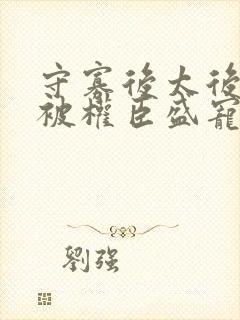 守寡後太後
被權臣盛寵
劉強